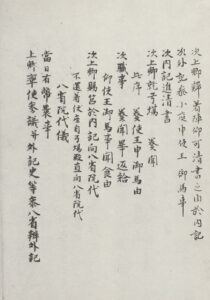 次上卿移著陣仰可清書之由於内記
次外記參小庭申使王御馬事
次内記進清書
次上卿就弓場 奏聞
此序 奏使王申御馬由
次職事 奏聞畢返給
仰使王御馬事聞食由
次上卿賜筥於内記向八省院代
不還着仗座自弓場殿直向八省院代
八省院代儀
當日有幣裹事
上卿率使參議弁外記史等參八省辨外記